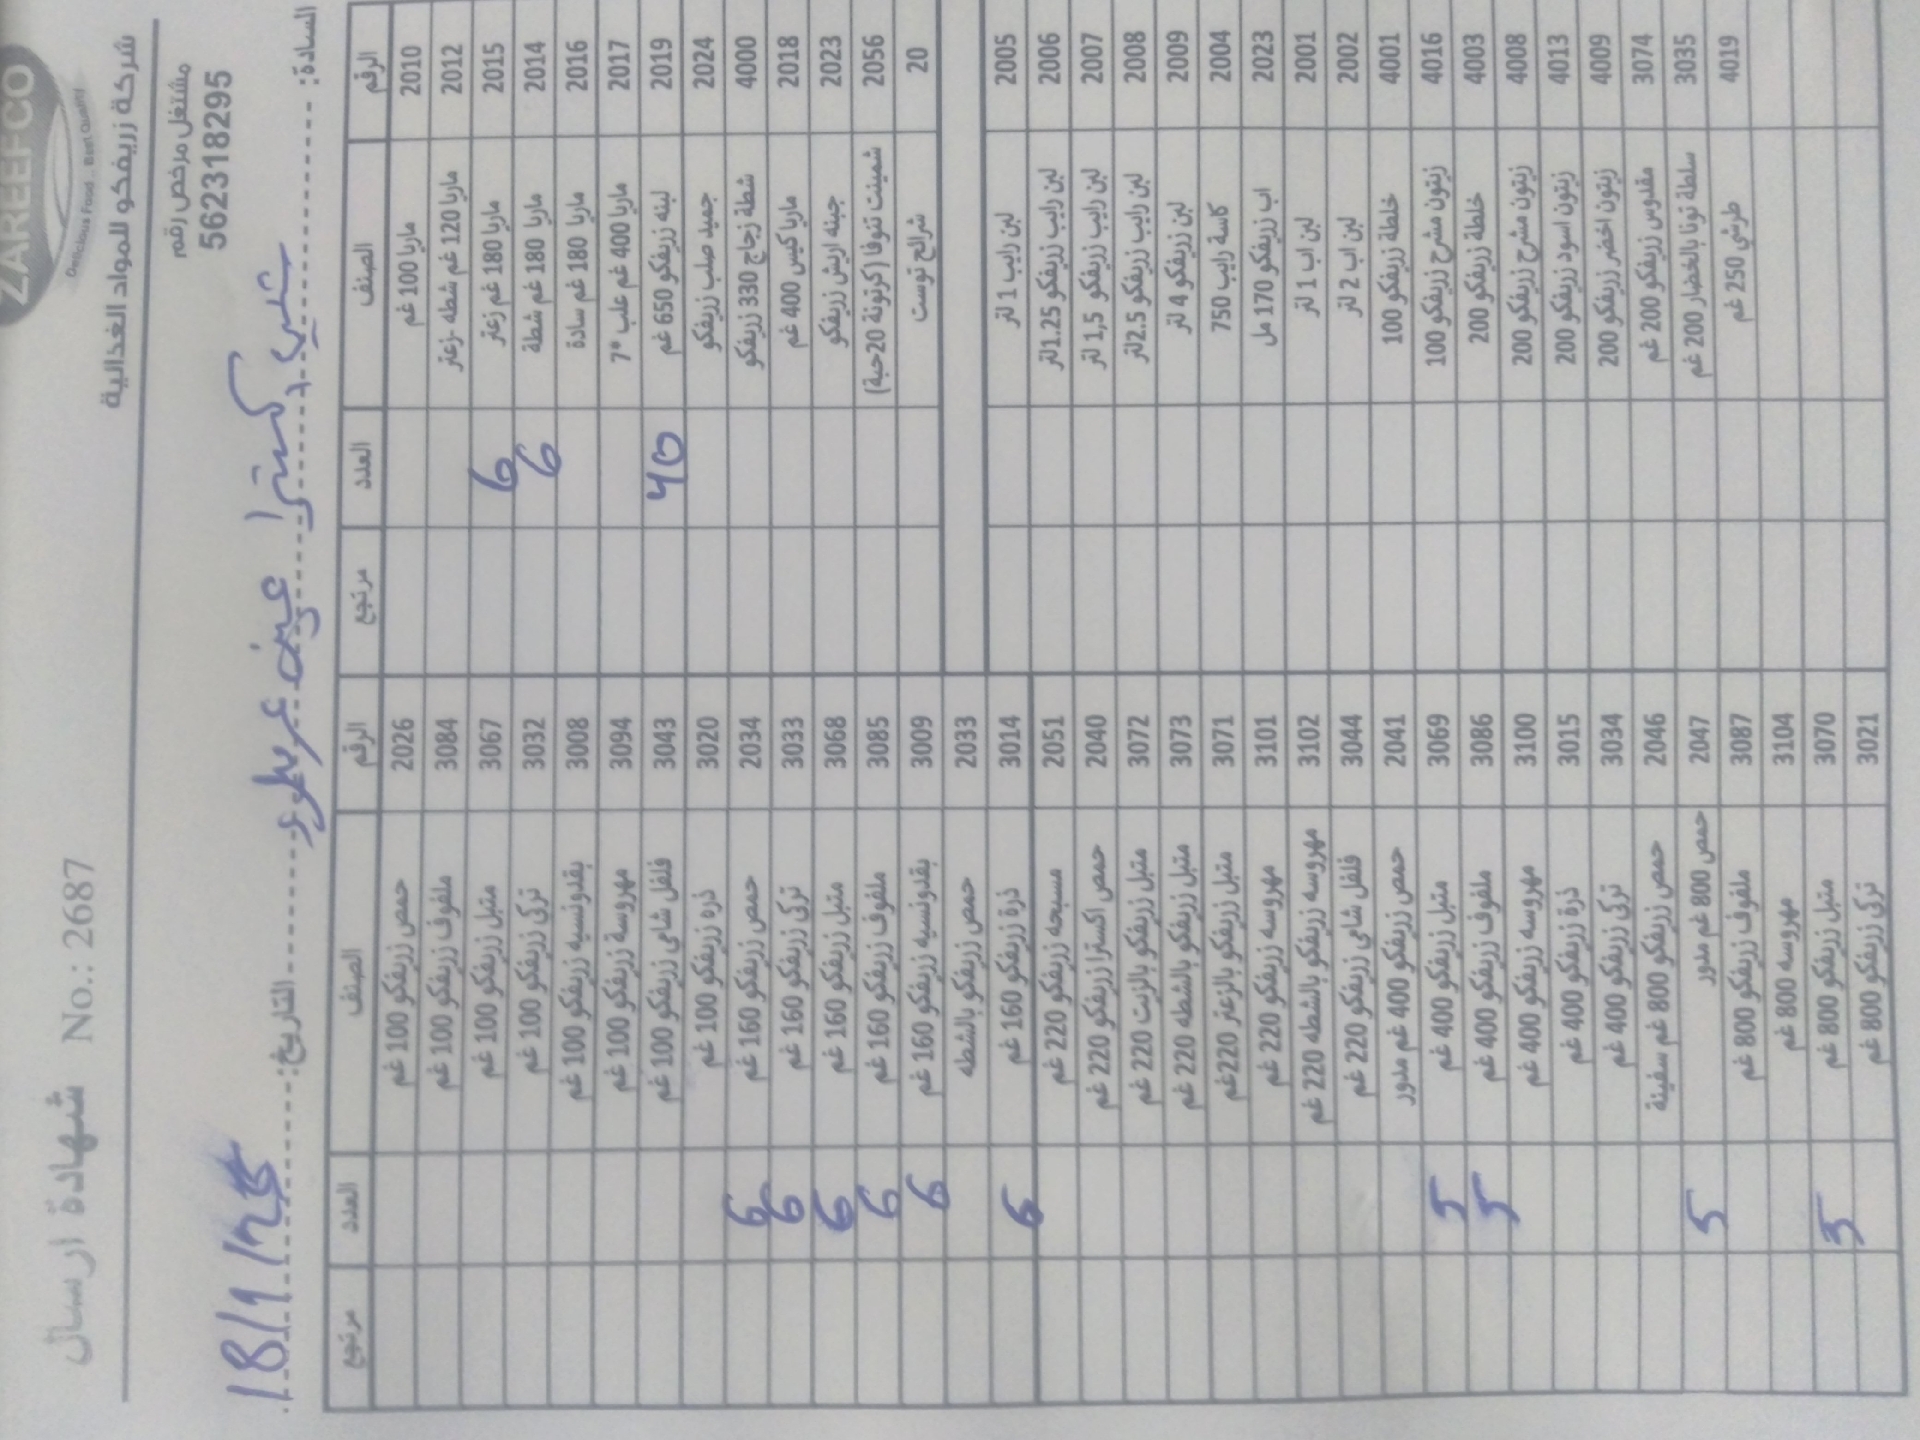 ZAREEFCO
Delicious Food .. Best Quality
شركة زريفكو للمواد الغذائية
شهادة ارسال No.: 2687
مشتغل مرخص رقم
562318295
السادة:
التاريخ: 18/1/
الرقم الصنف العدد مرتجع الرقم الصنف العدد مرتجع
2010 ماريا 100 غم 2026 حمص زريفكو 100 غم
2012 ماريا 120 غم شطه -زعتر 3084 ملفوف زريفكو 100 غم
2015 ماريا 180 غم زعتر 6 3067 متبل زريفكو 100 غم
2014 ماريا 180 غم شطة 6 3032 تركي زريفكو 100 غم
2016 ماريا 180 غم سادة 3008 بقدونسيه زريفكو 100 غم
2017 ماريا 400 غم علب *7 3094 مهروسة زريفكو 100 غم
2019 لبنه زريفكو 650 غم 40 3043 فلفل شامي زريفكو 100 غم
2024 جميد صلب زريفكو 3020 ذره زريفكو 100 غم
4000 شطة زجاج 330 زريفكو 2034 حمص زريفكو 160 غم 6
2018 ماريا كيس 400 غم 3033 تركي زريفكو 160 غم 6
2023 جبنه اريش زريفكو 3068 متبل زريفكو 160 غم 6
2056 شمينت تنوفا (كرتونة 20حبة) 3085 ملفوف زريفكو 160 غم 6
20 شرائح توست 3009 بقدونسيه زريفكو 160 غم 6
2033 حمص زريفكو بالشطه
2005 لبن رايب 1 لتر 3014 ذرة زريفكو 160 غم 6
2006 لبن رايب زريفكو 1.25لتر 2051 مسبحه زريفكو 220 غم
2007 لبن رايب زريفكو 1,5 لتر 2040 حمص اكسترا زريفكو 220 غم
2008 لبن رايب زريفكو 2.5لتر 3072 متبل زريفكو بالزيت 220 غم
2009 لبن زريفكو 4 لتر 3073 متبل زريفكو بالشطه 220 غم
2004 كاسة رايب 750 3071 متبل زريفكو بالزعتر 220غم
2023 اب زريفكو 170 مل 3101 مهروسه زريفكو 220 غم
2001 لبن اب 1 لتر 3102 مهروسه زريفكو بالشطه 220 غم
2002 لبن اب 2 لتر 3044 فلفل شامي زريفكو 220 غم
4001 خلطة زريفكو 100 2041 حمص زريفكو 400 غم مدور
4016 زيتون مشرح زريفكو 100 3069 متبل زريفكو 400 غم 5
4003 خلطة زريفكو 200 3086 ملفوف زريفكو 400 غم 5
4008 زيتون مشرح زريفكو 200 3100 مهروسه زريفكو 400 غم
4013 زيتون اسود زريفكو 200 3015 ذرة زريفكو 400 غم
4009 زيتون اخضر زريفكو 200 3034 تركي زريفكو 400 غم
3074 مقدوس زريفكو 200 غم 2046 حمص زريفكو 800 غم سفينة
3035 سلطة تونا بالخضار 200 غم 2047 حمص 800 غم مدور 5
4019 طرشي 250 غم 3087 ملفوف زريفكو 800 غم
3104 مهروسه 800 غم
3070 متبل زريفكو 800 غم 5
3021 تركي زريفكو 800 غم